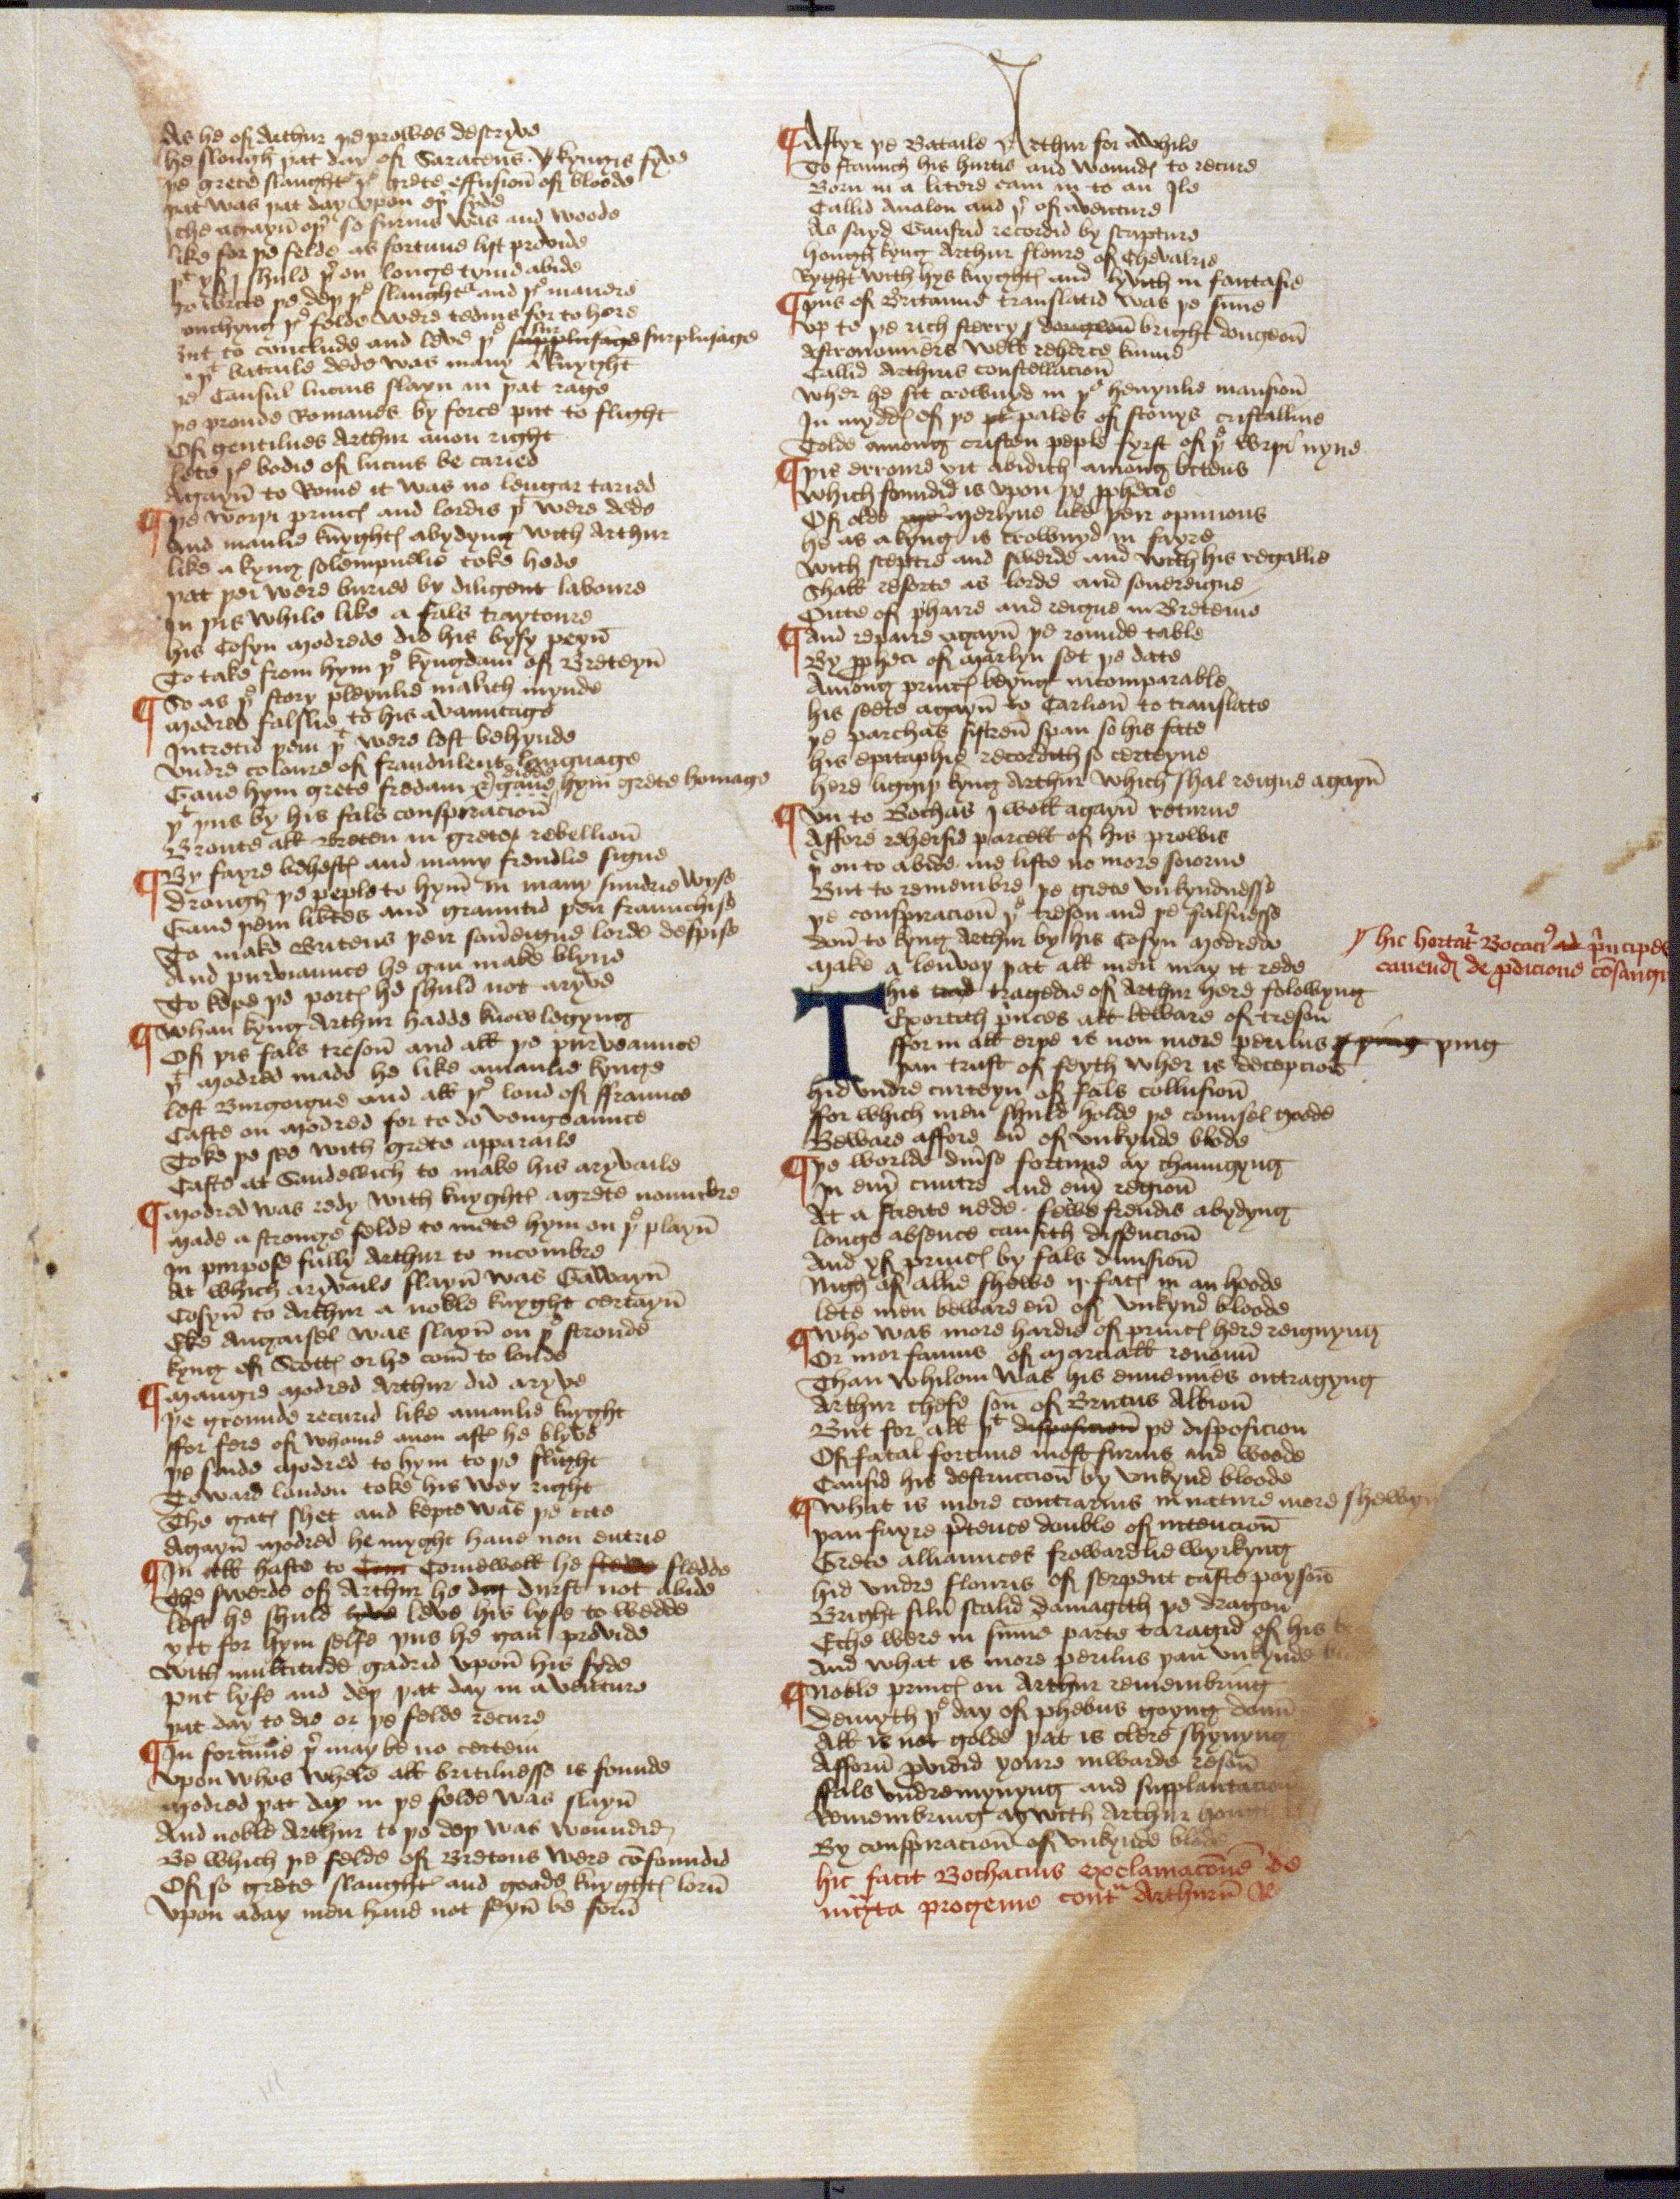 As he of Arthur þe prowes descryve
he slough þat day of Saracens v kyngis fyve
þe grete slaught þe grete effusion̄ of bloode
þat was þat day vpon eþ syde
Eche agayn̄ oþ so furius was and woode
like for þe felde as fortune lyst provide
þt yf I shuld þ on longe tyme abide
To write þe deþ þe slaught and þe manere
touchyng þe felde were tedius for to here
But to conclude and leve þe surplusage
In þt bataile dede was many a knyght
þe Cansul lucius slayn in þat rage
þe proude Romanes by force put to flight
Of gentilnes Arthur anon right
lete þe bodie of lucius be caried
Agayn̄ to Rome it was no lengar taried
¶ þe worþi princ̄ and lordis þt were dede
And manlie knyght̄ abydyng with Arthur
like a kyng solempnelie toke hede
þat þei were buried by diligent laboure
In þis while like a fals traytoure
his Cosyn modrede did his bysy peyn̄
To take from hym þe kyngdam of Breteyn̄
¶ So as þe story pleynlie makith mynde
modred falslie to his avauntage
Intretid þem þt were left behynde
vndre coloure of fraudulent language
Gaue hym grete fredam & dydde hym grete homage
þt þus by his fals conspiracion̄
Broute all Breten in grete rebellion̄
¶ By fayre behest̄ and many frendlie signe
Drough þe peple to hym̄ in many sundrie wyse
Gaue þem libtes and grauntid þen fraunchise
To make Britens þeir sou̅eigne lorde despise
And purviaunce he gan make blyve
To kepe þe port̄ he shuld not aryve
¶ Whan kyng Arthur hadde knowlegyng
Of þis fals treson̄ and all þe purveaunce
þt modred made he like amanlie kynge
left Burgoigne and all þe lond of ffraunce
Caste on modred for to do vengeaunce
Toke þe see with grete apparaile
Caste at Sandewich to make his aryvaile
¶ modred was redy with knyght̄ agrete noumbre
made a stronge felde to mete hym on þe playn̄
In purpose fully Arthur to incombre
At which aryvaile slayn̄ was Gawayn̄
Cosyn̄ to Arthur a noble knyght certayn̄
Eke Angaisel was slayn̄ on þe stronde
kyng of Scott̄ or he com̄ to londe
¶ maugre modred Arthur did aryve
þe grounde recurid like amanlie knyght
ffor fere of whome anon aft̄ he blyve
þe seide modred to hym to þe flight
Toward london toke his wey right
The gat̄ shet and kepte was þe cite
Agayn̄ modred he myght haue non entrie
¶ In all haste to Corn Cornewell he fledde fledde
The swerde of Arthur he dur durst not abide
lest he shuld leve his lyfe to wedde
yit for hym selfe þus he gan̄ provide
With multitude gadrid vpon̄ his syde
put lyfe and deþ þat day in aventure
þat day to die or þe felde recure
¶ In fortune þ may be no certein
vpon whos whele all britilnesse is founde
modred þat day in þe felde was slayn̄
And noble Arthur to þe deþ was woundid
Be which þe felde of Bretons were co̅foundid
Of so grete slaught̄ and goode knyght̄ lorn̄
vpon aday men haue not seyn̄ be forn̄
¶ Aftyr þe Bataile Arthur for awhile
To staunch his hurtis and wound̄ to recure
Born in a litere cam in to an Ile
Callid Aualon and þ of aventure
As sayd Gaufrid recordid by scripture
hough kyng Arthur floure of Chevalrie
Ryght with hys knyght̄ and lyvith in fantasie
¶ þus of Britanne translatid was þe sunne
vp to þe rich sterry dongeon̄ bright dongeon̄
Astronomiers well reherce kunne
Callid Arthuris constellacion̄
Wher he sit crownyd in þe hevynlie mansion̄
In mydd̄ of þe pt pales of stonys cristalline
Tolde among cristen peple fyrst of þe worþi nyne
¶ þis erroure yit abidith among bretens
Which foundid is vpon þe p̱phecie
Of olde merlyne like þeir opinions
he as a kyng is crownyd in fayre
With sceptre and swerde and with his regallie
Shall resorte as lorde and souereigne
Oute of phairie and reigne in Breteine
¶ And repaire agayn̄ þe rounde table
By p̱pheci of marlyn set þe date
Among princ̄ beyng incomparable
his seete agayn̄ to Carlion̄ to translate
þe Parchas sistren̄ span so his fate
his epitaphie recordith so certeyne
here liggiþ kyng Arthur which shal reigne agayn̄
¶ vn to Bochas I well agayn̄ returne
Affore rehersid parcell of his prowis
þ on to abide me liste no more soiorne
But to remembre þe grete vnkyndnesse
þe conspiracion̄ þe treson and þe falsnesse
don̄ to kyng Arthur by his Cosyn modrede
make a lenvoy þat all men may it rede
hic hortat̄ Bocaci9 ad p̄ncipes
cauend̄ de p̱dicione co̅sangu
This trad tragedie of Arthur here folowyng
Exortith p̄nces all beware of treson
ffor in all erþe is non more perilus þing
þan trust of feyth wher is decepcion
hid vndre curteyn of fals collusion̄
ffor which men shuld holde þe counsel goode
Beware affore eu̅ of vnkynde blode
¶ þe worlde diu̅se fortune ay chaungyng
In eu̅y cuntre and eu̅y region̄
At a streite nede fewe frendis abydyng
longe absence causith dissencion̄
And yf princ̄ by fals diuision̄
Nigh of alie shewe ij fac̄ in an hoode
lete men beware eu̅ of vnkynd bloode
¶ Who was more hardie of princ̄ here reignyng
Or mor famus of marciall renoun̄
Than whilom was his ennemies outragyng
Arthur chefe son̄ of Brutus Albion̄
But for all þt disposicion̄ þe disposicion
Of fatal fortune most furius and woode
Causid his destruccion̄ by vnkynd bloode
¶ What is more contrarius in nature more shewyn
þan fayre p̄tence double of intencion̄
Grete alliaunces frowardlie wyrkyng
hid vndre flouris of serpent caste poyson̄
Bright silu̅ scalid damagith þe dragon
Eche were in sum̄e parte taragid of his
And what is more perilus þan vnkynde bl
¶ Noble princ̄ on Arthur remembring
Demyth þe day of phebus goyng doun̄
All is not golde þat is clere shynyng
Afforn̄ p̱vidid youre inwarde reson̄
ffals vndremynyng and supplantacion
Remembring ay with Arthur houg
By conspiracion̄ of vnkynde blode
hic facit Bochacius exclamacōne de
iniu̅cta progenie cont̄ Arthuru̅